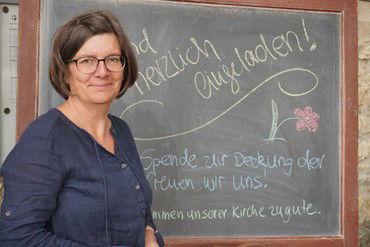 nd
herzlich
eingeladen!
Spende zur Deckung der
freuen wir uns.
mmen unserer Kirche zugute.